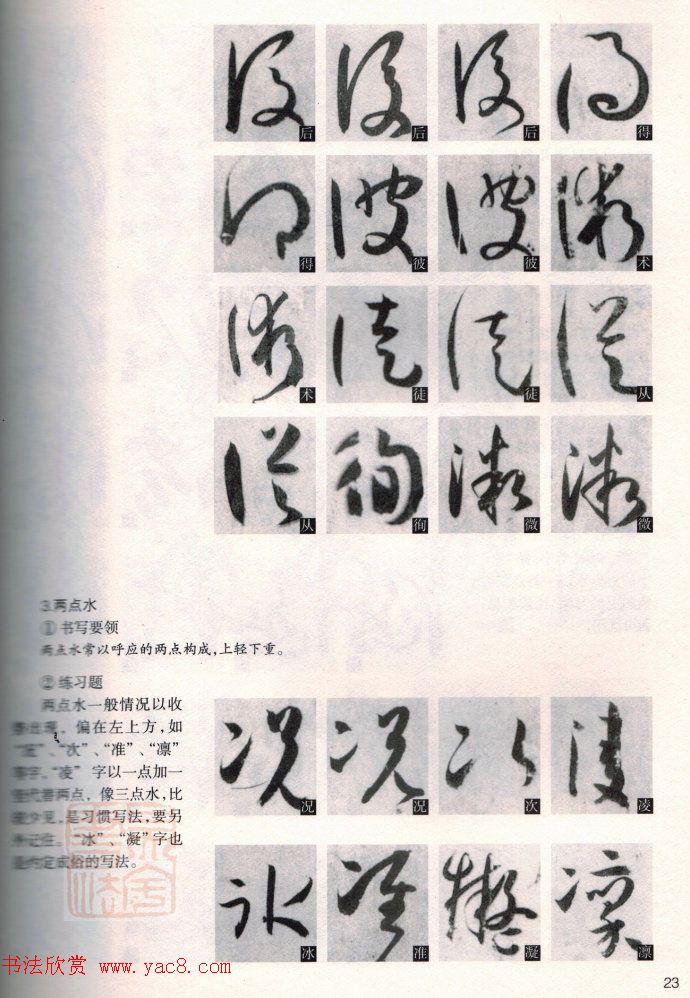 后 后 后 得
得 彼 彼 术
术 徒 徒 从
从 徇 微 微
3.两点水
①书写要领
两点水常以呼应的两点构成,上轻下重。
②练习题
两点水一般情况以收
偏在左上方,如
“次”、“准”、“凛”
等字。“凌”字以一点加一
两点,像三点水,比
较少见,是习惯写法,要另
外记住。“冰”、“凝”字也
是约定成俗的写法。
况 况 次 凌
冰 准 凝 凛
书法欣赏 www.yac8.com
23